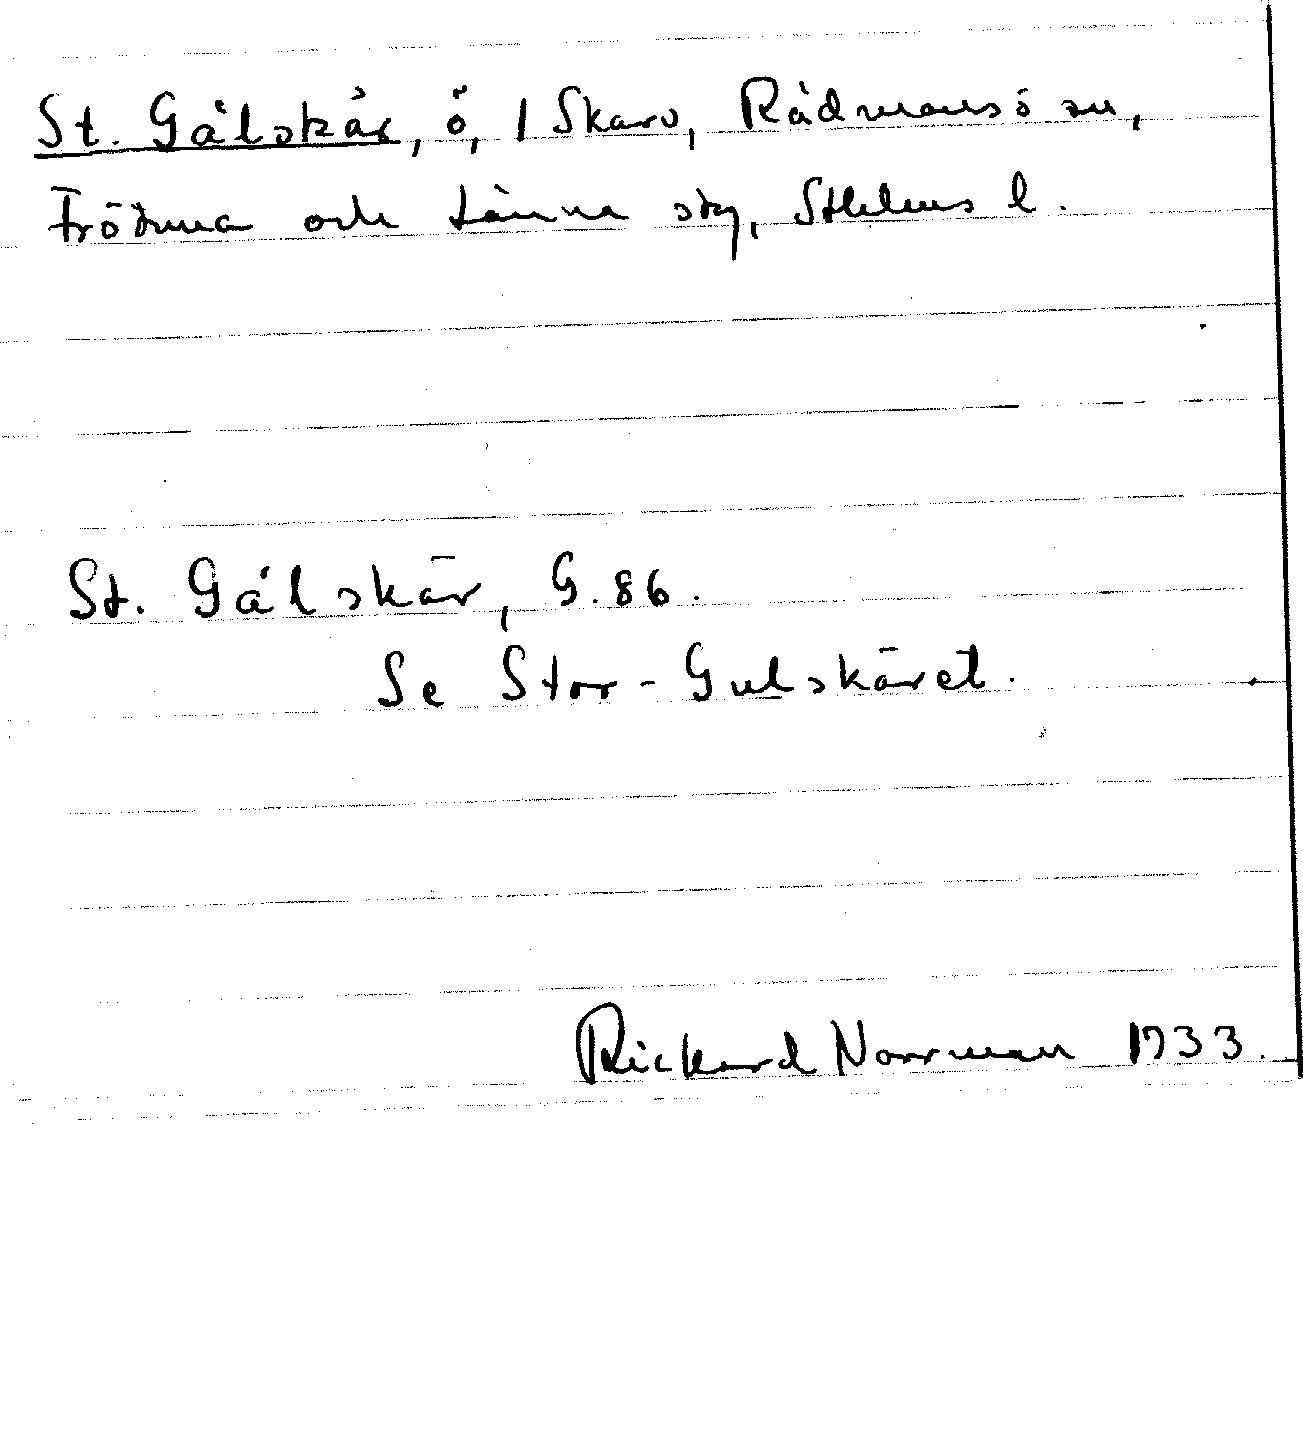 St. Gålskär, ö, 1 Skarv, Rådmansö sn,
Frötuna och Länna skg, Sthlms l.
St. Gålskär, G. 86.
Se Stor-Gulskäret.
Rickard Norrman 1933.